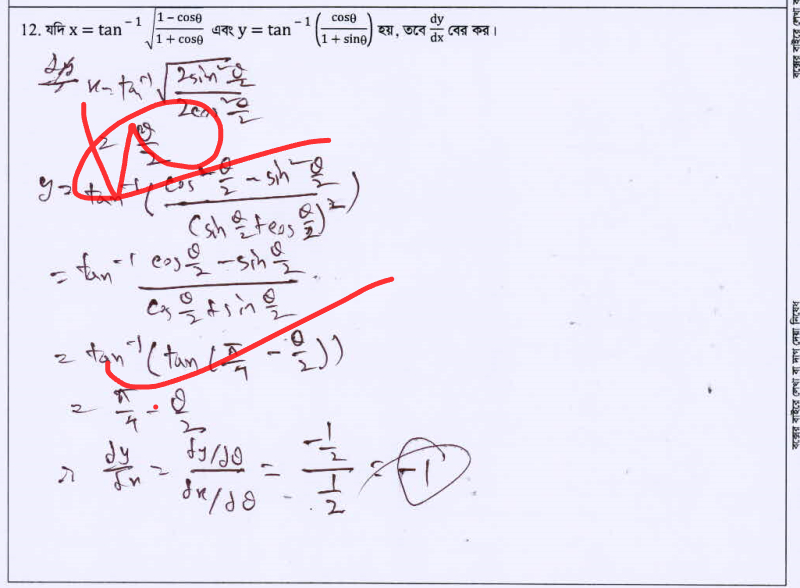 12. যদি x = tan⁻¹ √((1 − cosθ)/(1 + cosθ)) এবং y = tan⁻¹ (cosθ/(1 + sinθ)) হয়, তবে dy/dx বের কর।
x = tan⁻¹ √((2sin² θ/2)/(2cos² θ/2))
= θ/2
y = tan⁻¹ ((cos² θ/2 − sin² θ/2)/(sin θ/2 + cos θ/2)²)
= tan⁻¹ (cos θ/2 − sin θ/2)/(cos θ/2 + sin θ/2)
= tan⁻¹ (tan (π/4 − θ/2))
= π/4 − θ/2
∴ dy/dx = (dy/dθ)/(dx/dθ) = (−1/2)/(1/2) = −1
বক্সের বাইরে লেখা বা দাগ দেয়া নিষেধ